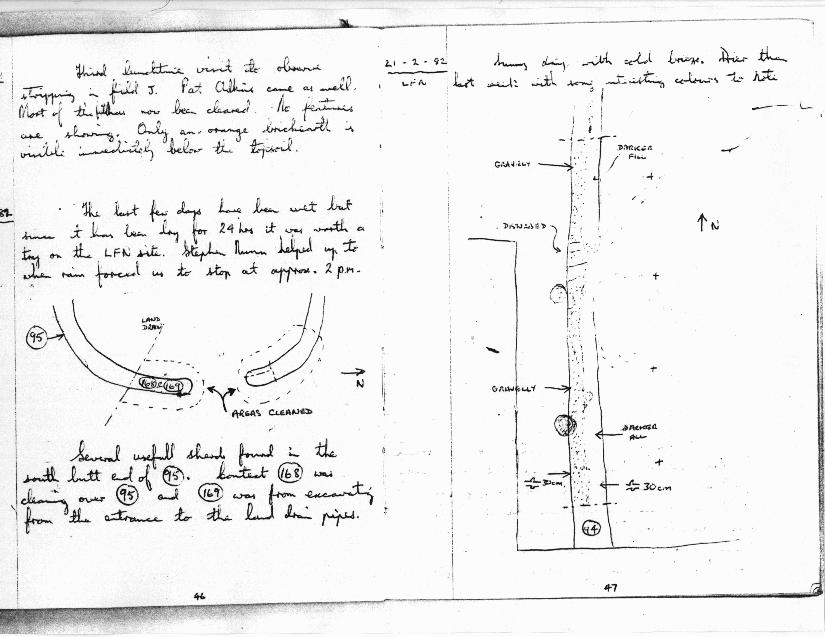 Third lunchtime visit to observe
stripping in field J. Pat Adkins came as well.
Most of the has now been cleared. No features
are showing. Only an orange brickearth is
visible immediately below the topsoil.
82
The last few days have been wet but
since it has been dry for 24 hrs it was worth a
try on the LFN site. Stephen Nunn helped up to
when rain forced us to stop at approx. 2 p.m.
LAND
DRAIN
95
168 & 169
N
AREAS CLEANED
Several usefull sherds found in the
south butt end of 95. Context 168 was
cleaning over 95 and 169 was from excavating
from the entrance to the land drain pipes.
46
21-2-82
LFN
Sunny day with cold breeze. Drier than
last week with some interesting colours to note
GRAVELLY
DARKER
FILL
N
DAMAGED
GRAVELLY
DARKER
FILL
30cm
30cm
94
47